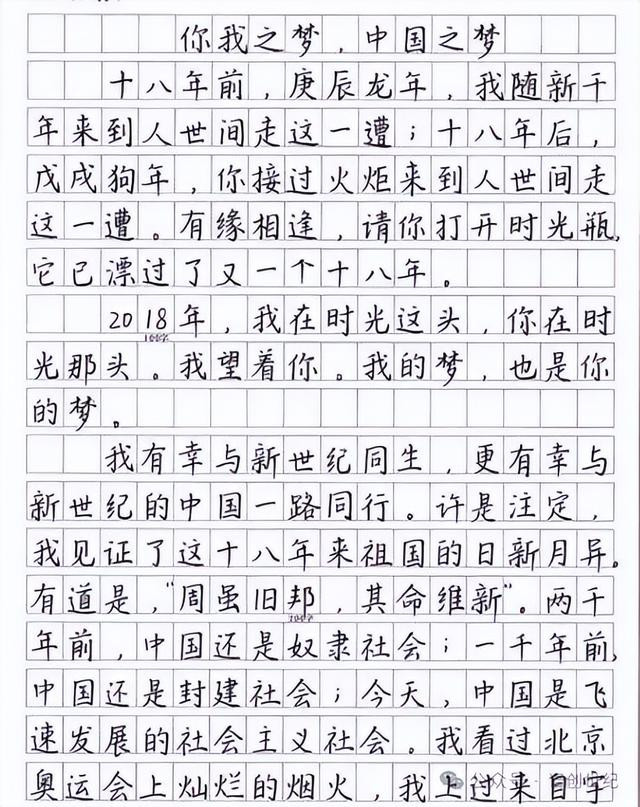 你我之梦，中国之梦
十八年前，庚辰龙年，我随新千
年来到人世间走这一遭；十八年后，
戊戌狗年，你接过火炬来到人世间走
这一遭。有缘相逢，请你打开时光瓶，
它已漂过了又一个十八年。
2018年，我在时光这头，你在时
100字
光那头。我望着你。我的梦，也是你
的梦。
我有幸与新世纪同生，更有幸与
新世纪的中国一路同行。许是注定，
我见证了这十八年来祖国的日新月异。
有道是，“周虽旧邦，其命维新”。两千
200字
年前，中国还是奴隶社会；一千年前，
中国还是封建社会；今天，中国是飞
速发展的社会主义社会。我看过北京
奥运会上灿烂的烟火，我上过来自车
公众号